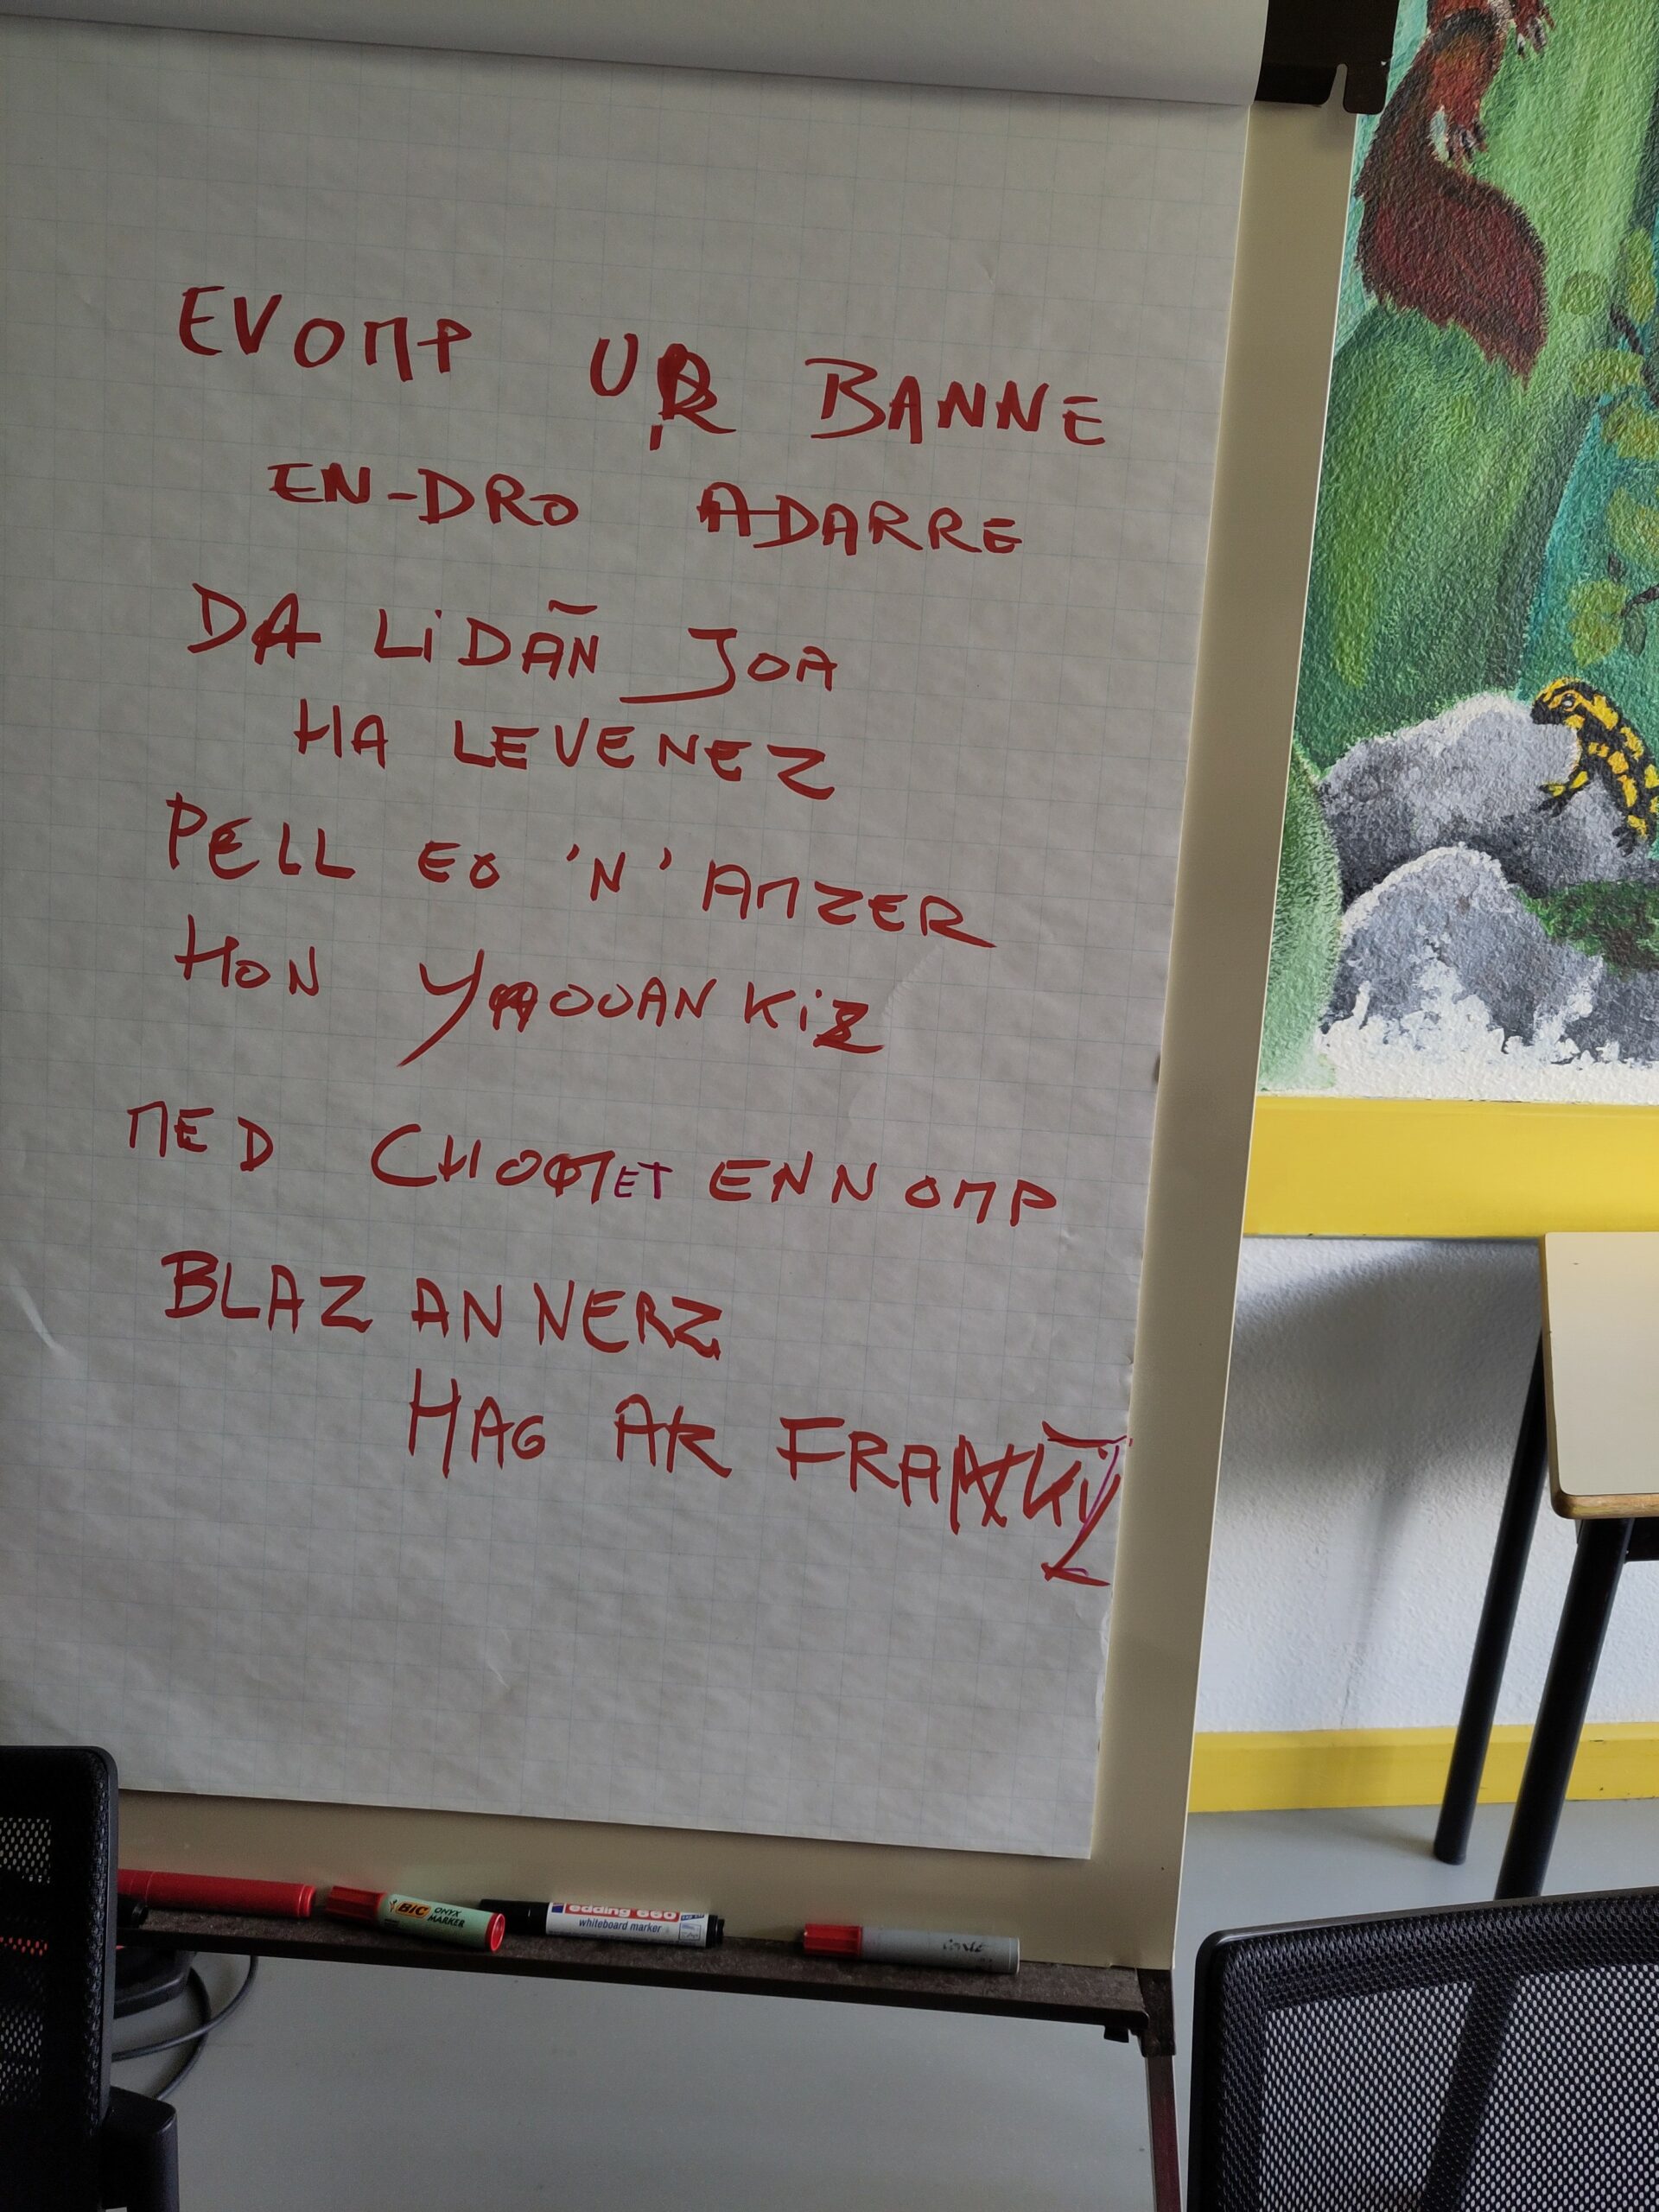 EVOMP UR BANNE
EN-DRO ADARRE
DA LiDAÑ JOA
HA LEVENEZ
PELL EO 'N' AMZER
HON YAOUANKiZ
MED CHOMET ENNOMP
BLAZ AN NERZ
HAG AR
BiC ONYX MARKER
edding 660
whiteboard marker